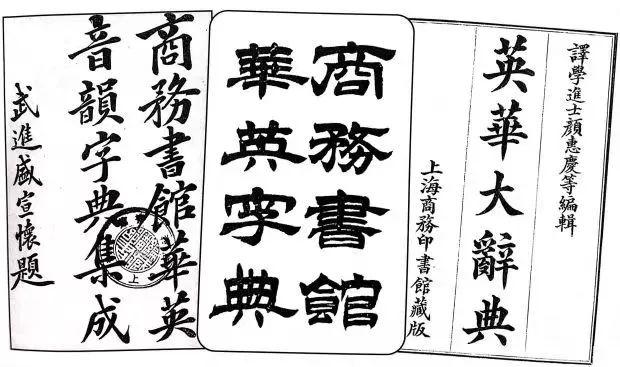 譯學進士顏惠慶等編輯
英華大辭典
上海商務印書館藏版
商務書館
華英字典
商務書館華英
音韻字典集成
武進盛宣懷題